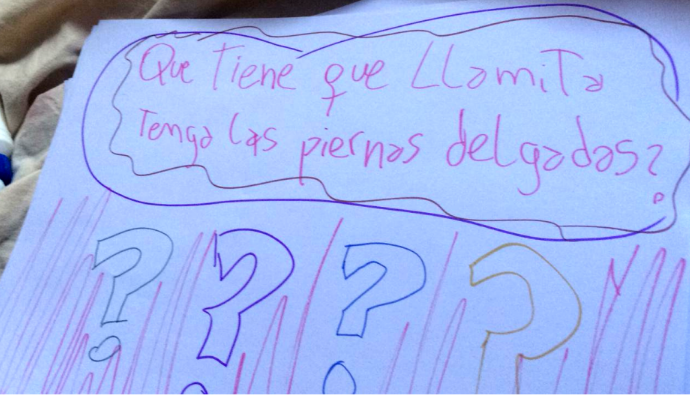 Que Tiene que LLamiTa
Tenga las piernas delgadas?
? ? ? ?